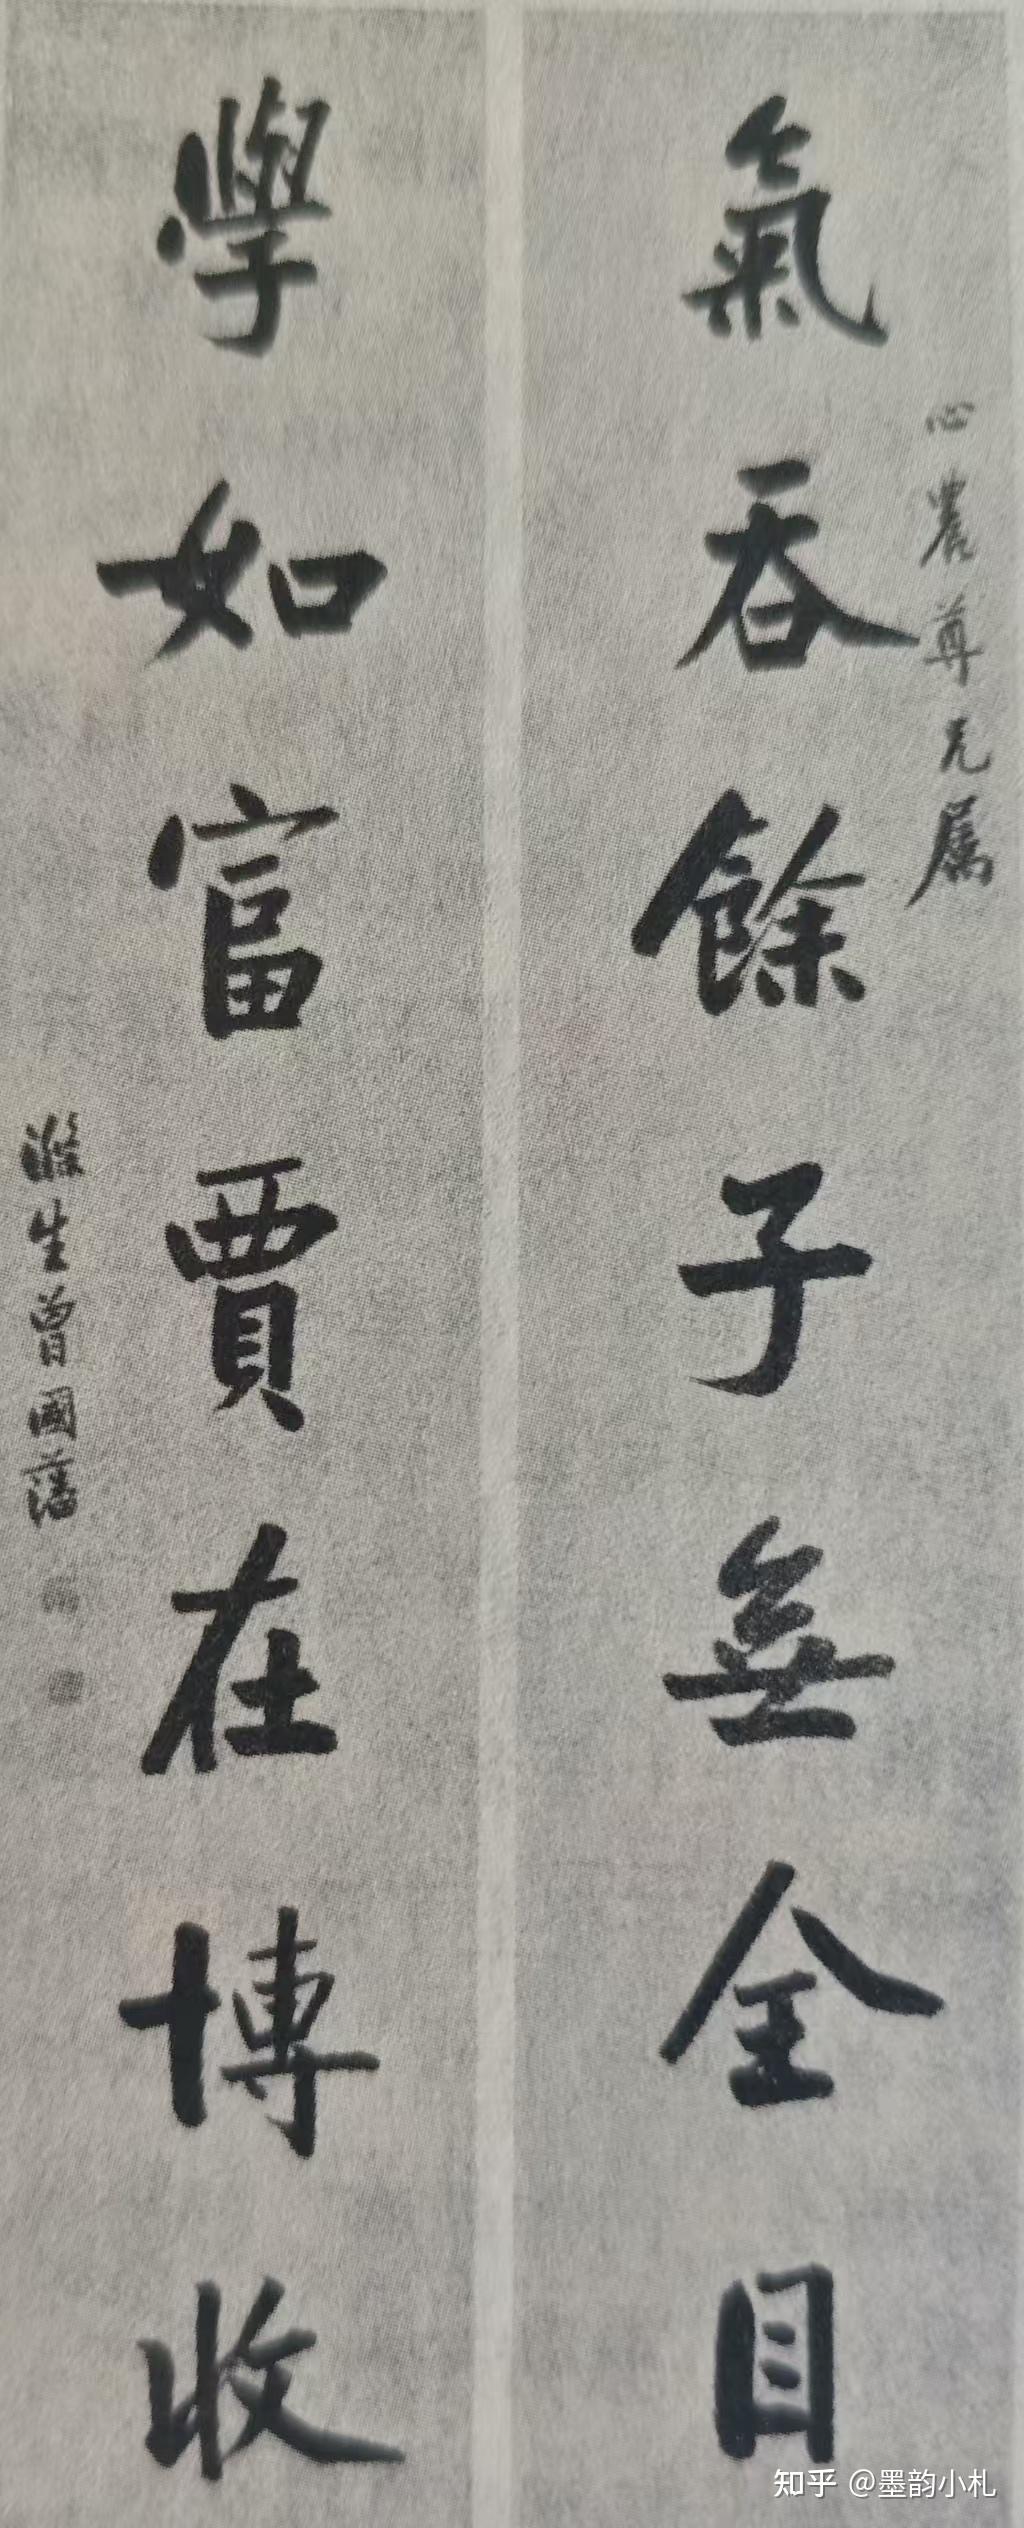 心農尊兄屬
氣吞餘子無全目
學如富賈在博收
滌生曾國藩
知乎 @墨韵小札